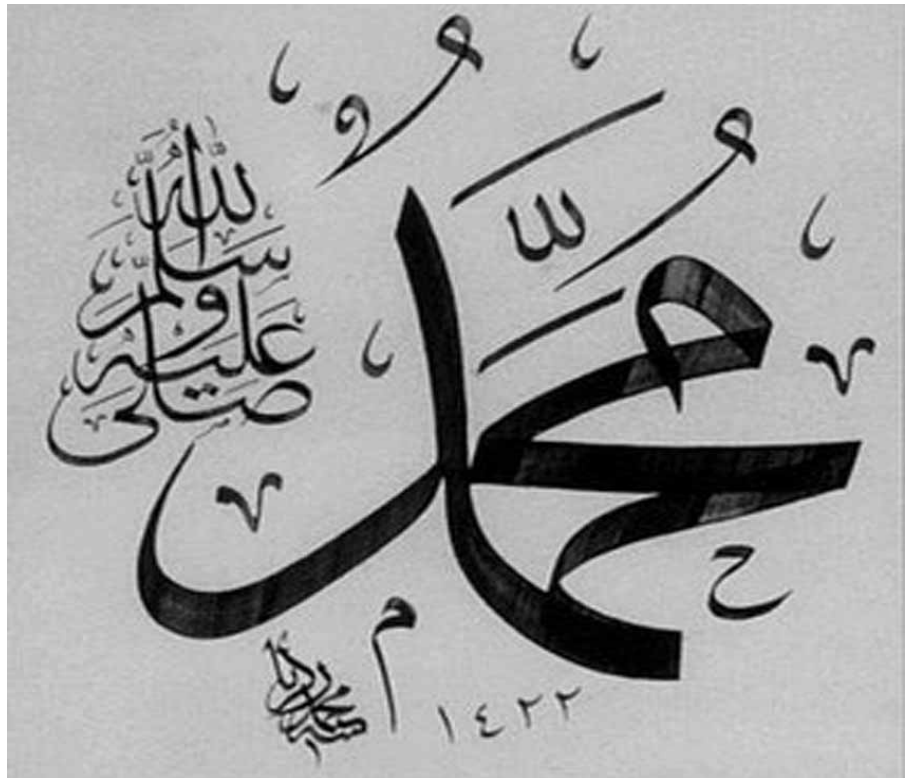 مُحَمَّدٌ
صلى الله عليه وسلم
١٤٢٢